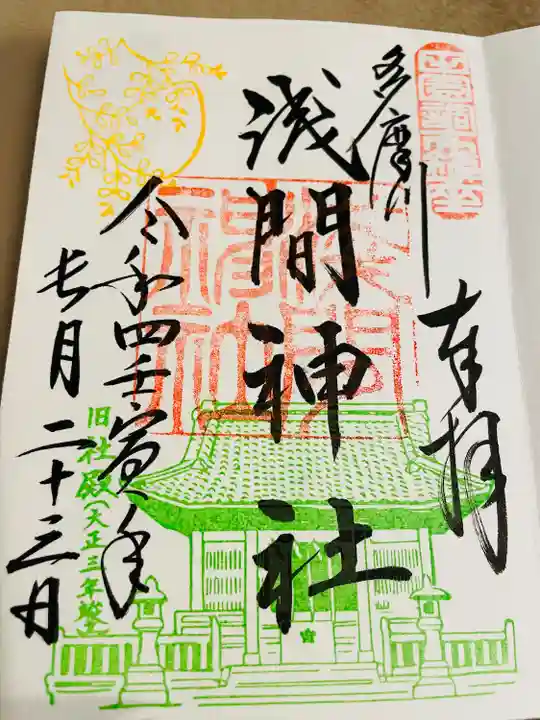 奉拝
多摩川
浅間神社
淺間
神社
令和四壬寅年
長月二十三日
旧社殿(天正三年